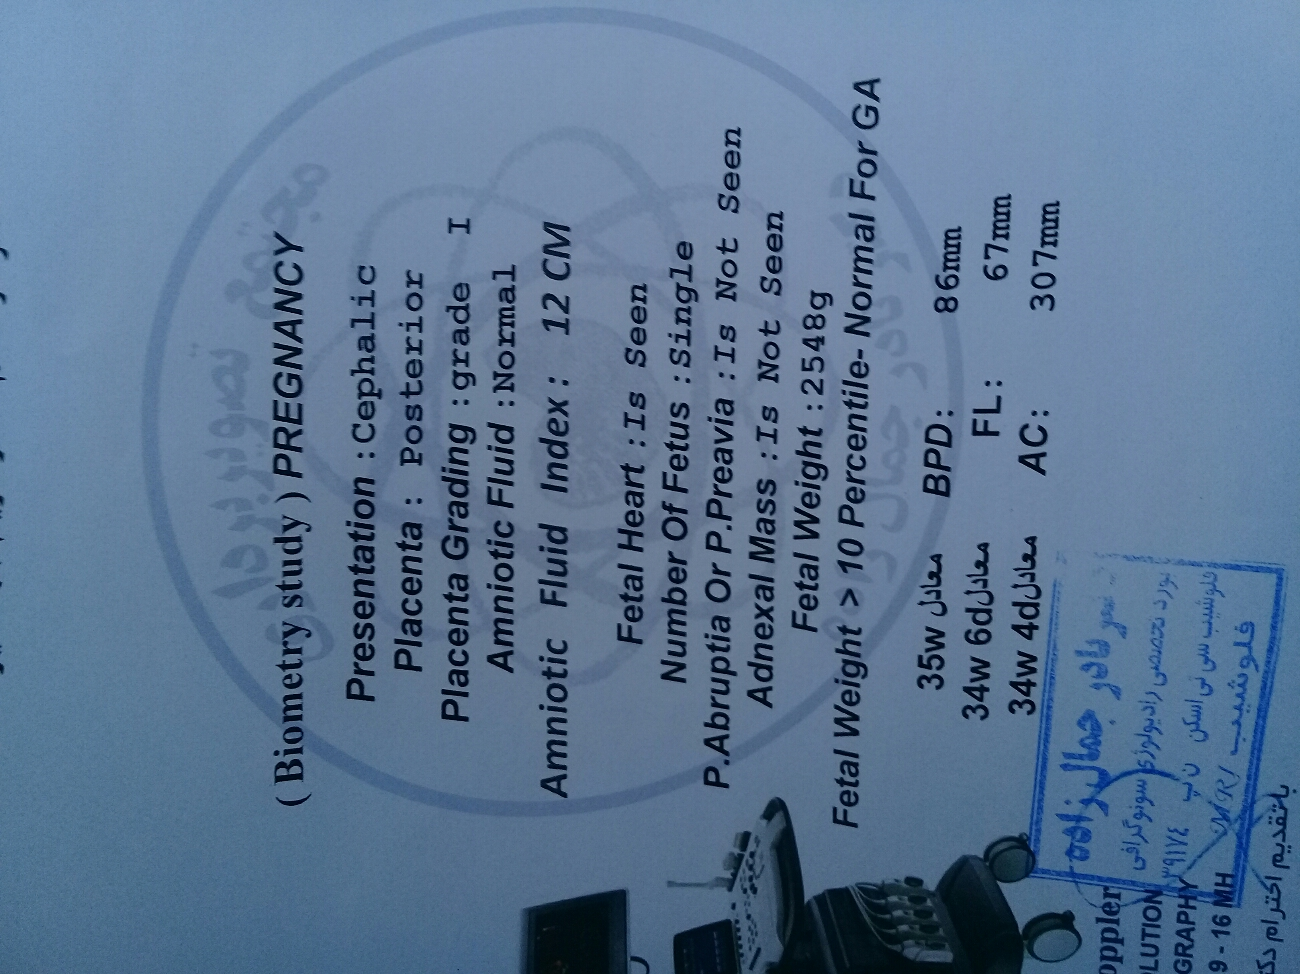 ( Biometry study ) PREGNANCY
Presentation : Cephalic
Placenta : Posterior
Placenta Grading : grade I
Amniotic Fluid : Normal
Amniotic Fluid Index : 12 CM
Fetal Heart : Is Seen
Number Of Fetus : Single
P.Abruptia Or P.Preavia : Is Not Seen
Adnexal Mass : Is Not Seen
Fetal Weight : 2548g
Fetal Weight > 10 Percentile- Normal For GA
35w معادل BPD: 86mm
34w 6d معادل FL: 67mm
34w 4d معادل AC: 307mm
نادر جمالزاده
بورد تخصصی رادیولوژی سونوگرافی
فلوشیپ سی تی اسکن ن پ
فلوشیپ MRI
oppler
LUTION
GRAPHY
9 - 16 MH
باتقدیم احترام دک
تصویربرداری
مجتمع